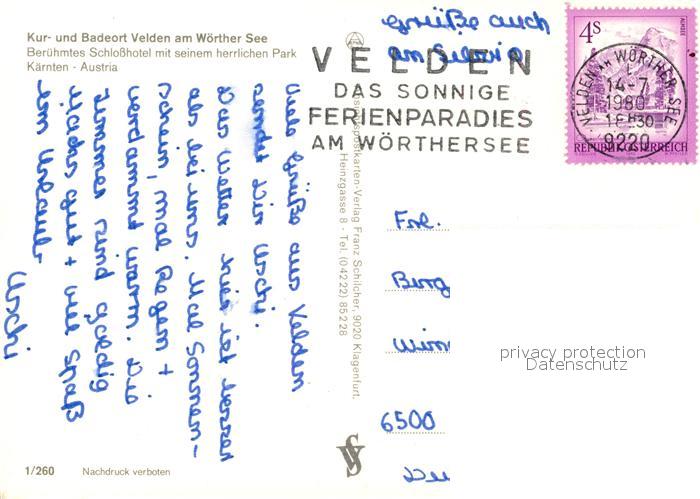 Kur- und Badeort Velden am Wörther See
Berühmtes Schloßhotel mit seinem herrlichen Park
Kärnten - Austria
Grüße auch
an Silvia
VELDEN
DAS SONNIGE
FERIENPARADIES
AM WÖRTHERSEE
4S
ALMSEE
REPUBLIK ÖSTERREICH
VELDEN AM WÖRTHER SEE
14-7
1980
18H30
9220
Viele Grüße aus Velden
sendet Dir Uschi.
Das Wetter hier ist besser
als bei uns. Mal Sonnen-
schein, mal Regen +
verdammt warm. Die
Zimmer sind
gut + viel Spaß
im Urlaub
Uschi
Ansichtspostkarten-Verlag Franz Schilcher, 9020 Klagenfurt,
Heinzgasse 8 - Tel. (04222) 85228
Frl.
Burg
6500
privacy protection
Datenschutz
1/260
Nachdruck verboten